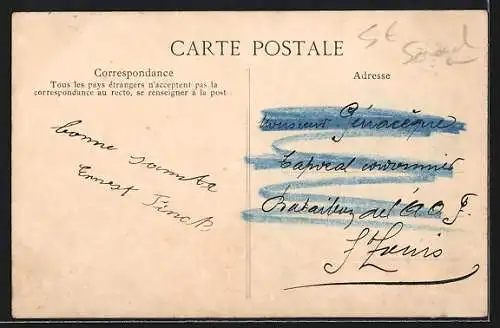 St
CARTE POSTALE
Correspondance
Tous les pays étrangers n'acceptent pas la
correspondance au recto, se renseigner à la post
bonne
Ernest
Adresse
Monsieur Génacèque
Caporal cordonnier
Bataillon de l'A.O.F.
St Louis